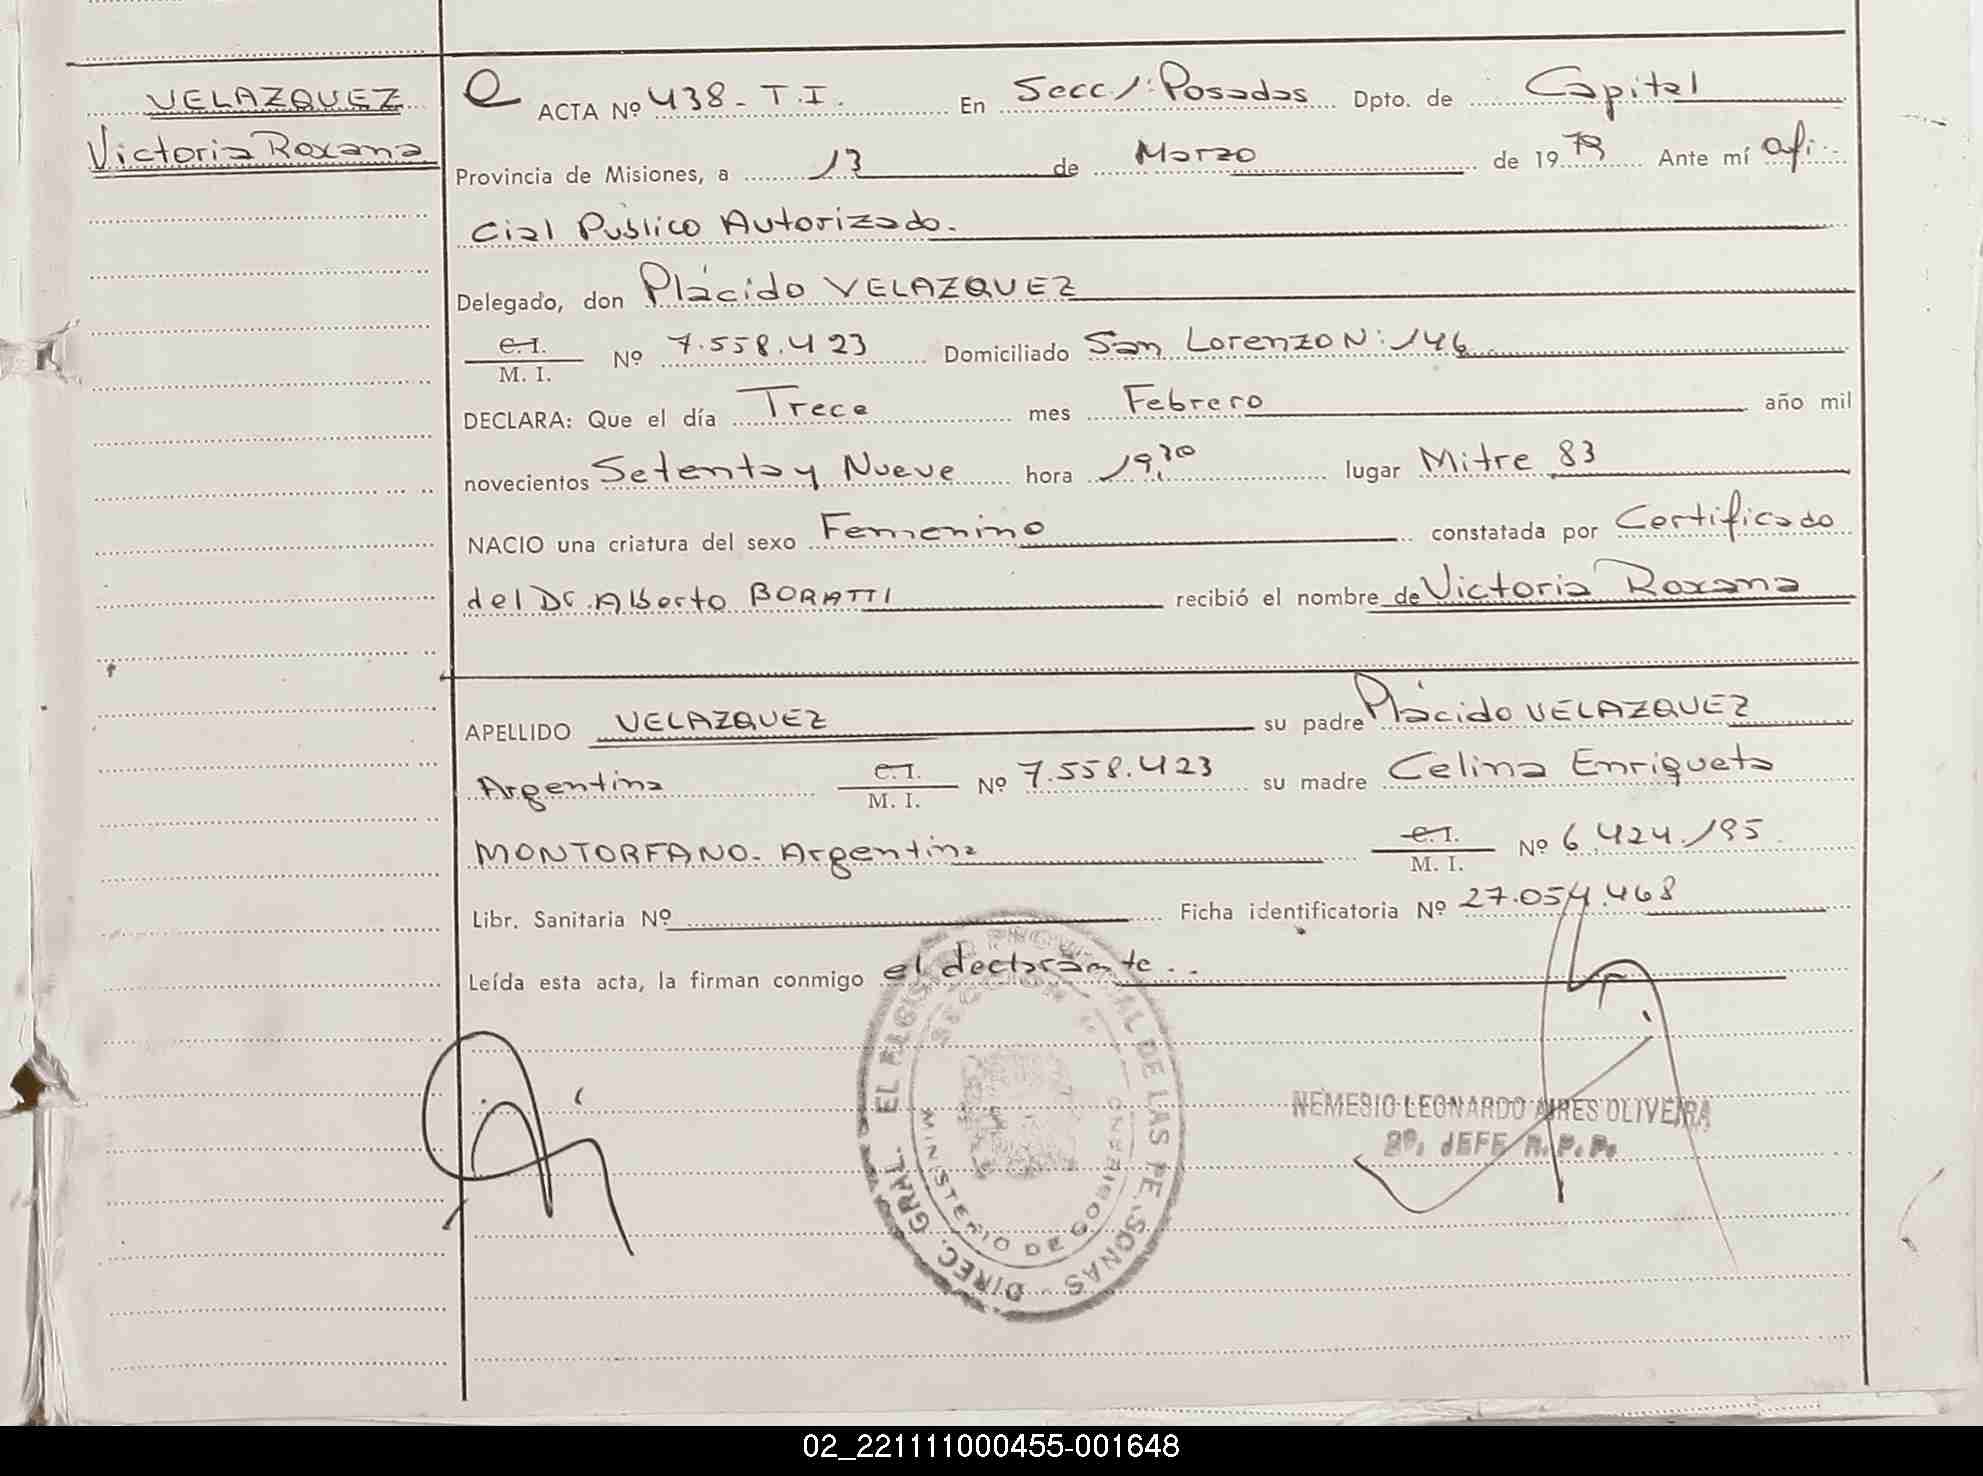 VELAZQUEZ
Victoria Roxana
ACTA Nº 438 - T. I. En Secc. 1: Posadas Dpto. de Capital
Provincia de Misiones, a 13 de Marzo de 1979 Ante mí ofi-
cial Público Autorizado.
Delegado, don Plácido VELAZQUEZ
C.I.
M. I. Nº 7.558.423 Domiciliado San Lorenzo N: 146
DECLARA: Que el día Trece mes Febrero año mil
novecientos Setenta y Nueve hora 19,30 lugar Mitre 83
NACIO una criatura del sexo Femenino constatada por Certificado
del Dr. Alberto BORATTI recibió el nombre de Victoria Roxana
APELLIDO VELAZQUEZ su padre Plácido VELAZQUEZ
Argentina C.I.
M. I. Nº 7.558.423 su madre Celina Enriqueta
MONTORFANO - Argentina C.I.
M. I. Nº 6.424.195
Libr. Sanitaria Nº Ficha identificatoria Nº 27.054.468
Leída esta acta, la firman conmigo el declarante..
DIREC. GRAL. EL REGISTRO PROVINCIAL DE LAS PERSONAS
SECCION 1
MINISTERIO DE GOBIERNO
NEMESIO LEONARDO AIRES OLIVEIRA
2º. JEFE R.P.P.
02_221111000455-001648